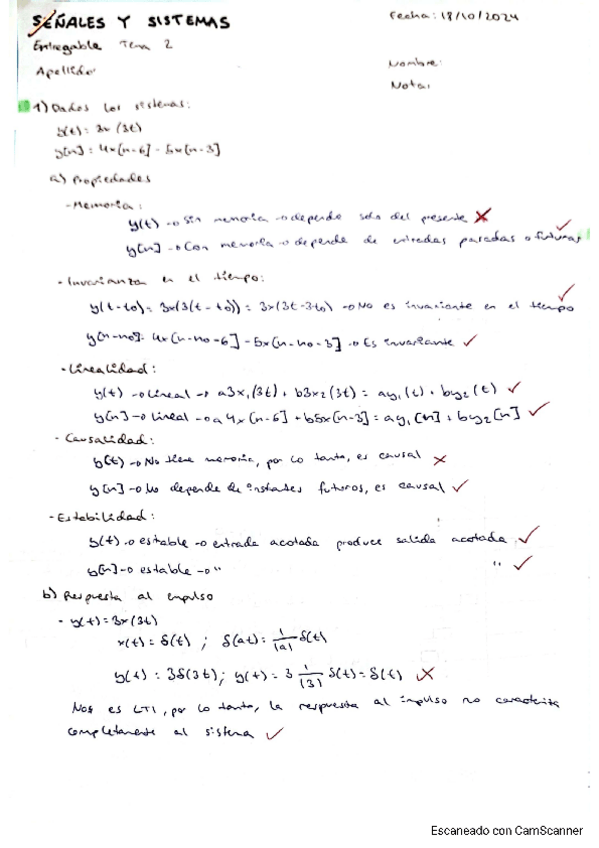 SEÑALES Y SISTEMAS
Fecha: 18/10/2024
Entregable Tema 2
Apellido:
Nombre:
Nota:
1) Dados los sistemas:
y(t) = 3x(3t)
y[n] = 4x[n-6] - 5x[n-3]
a) Propiedades
- Memoria:
y(t) → Sin memoria → depende solo del presente ✗
y[n] → Con memoria → depende de entradas pasadas o futuras ✓
- Invarianza en el tiempo:
y(t-t0) = 3x(3(t-t0)) = 3x(3t-3t0) → No es invariante en el tiempo ✓
y[n-n0] = 4x[n-n0-6] - 5x[n-n0-3] → Es invariante ✓
- Linealidad:
y(t) → lineal → a3x1(3t) + b3x2(3t) = ay1(t) + by2(t) ✓
y[n] → lineal → a4x[n-6] + b5x[n-3] = ay1[n] + by2[n] ✓
- Causalidad:
y(t) → No tiene memoria, por lo tanto, es causal ✗
y[n] → No depende de instantes futuros, es causal ✓
- Estabilidad:
y(t) → estable → entrada acotada produce salida acotada ✓
y[n] → estable → " " ✓
b) Respuesta al impulso
- y(t) = 3x(3t)
x(t) = δ(t) ; δ(at) = 1/|a| δ(t)
y(t) = 3δ(3t) ; y(t) = 3 1/|3| δ(t) = δ(t) ✗
es LTI, por lo tanto, la respuesta al impulso no caracteriza
completamente al sistema ✓
Escaneado con CamScanner